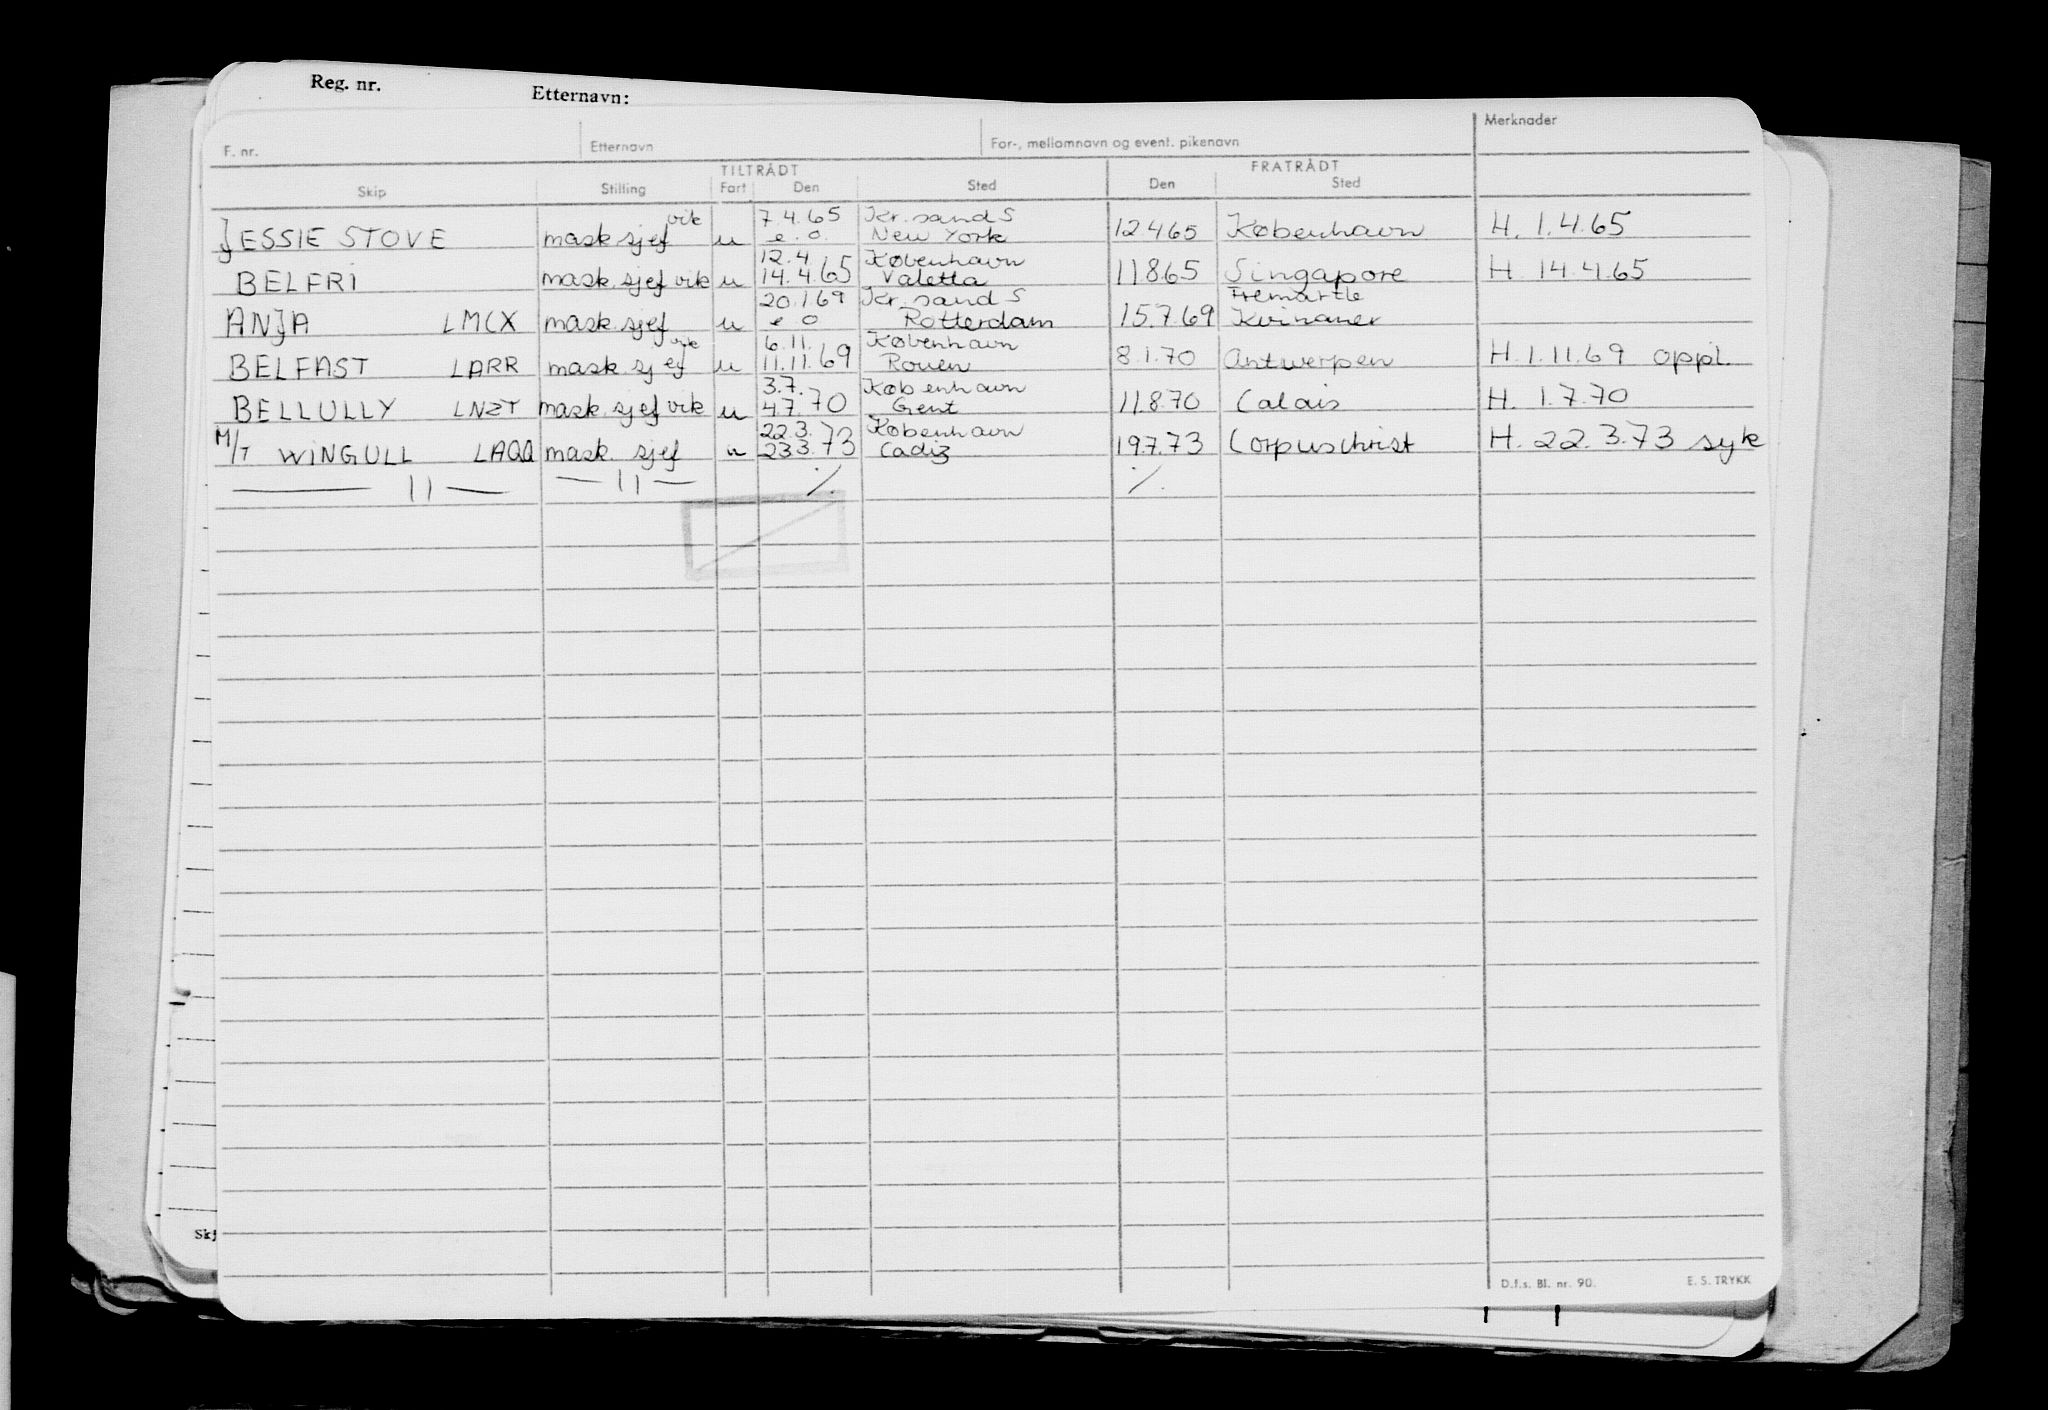 Reg. nr.
Etternavn:
F. nr.
Etternavn
For-, mellomnavn og event. pikenavn
Merknader
TILTRÅDT
FRATRÅDT
Skip
Stilling
Fart
Den
Sted
Den
Sted
vik 7.4.65 Kr.sand S
JESSIE STOVE mask.sjef u e.o. New York 12465 København H. 1.4.65
12.4 København
BELFRI mask.sjef vik u 14.4.65 Valetta 11865 Singapore H. 14.4.65
20.1.69 Kr.sand S
ANJA LMCX mask.sjef u e o Rotterdam 15.7.69
vik 6.11. København
BELFAST LARR mask.sjef u 11.11.69 Rouen 8.1.70 Antwerpen H.1.11.69 oppl.
3.7. København
BELLULLY LNZT mask.sjef vik u 4.7.70 Gent 11.8.70 Calais H. 1.7.70
22.3. København
M/T WINGULL LAQQ mask. sjef u 233.73 Cadiz 19.7.73 Corpuschrist H. 22.3.73 syk
— 11 — — 11 — ⁒ ⁒
Skj
D.f.s. Bl. nr. 90.
E. S. TRYKK